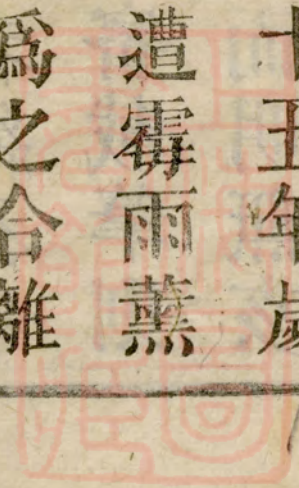 十五年歲
遭霉雨薰
爲之合離